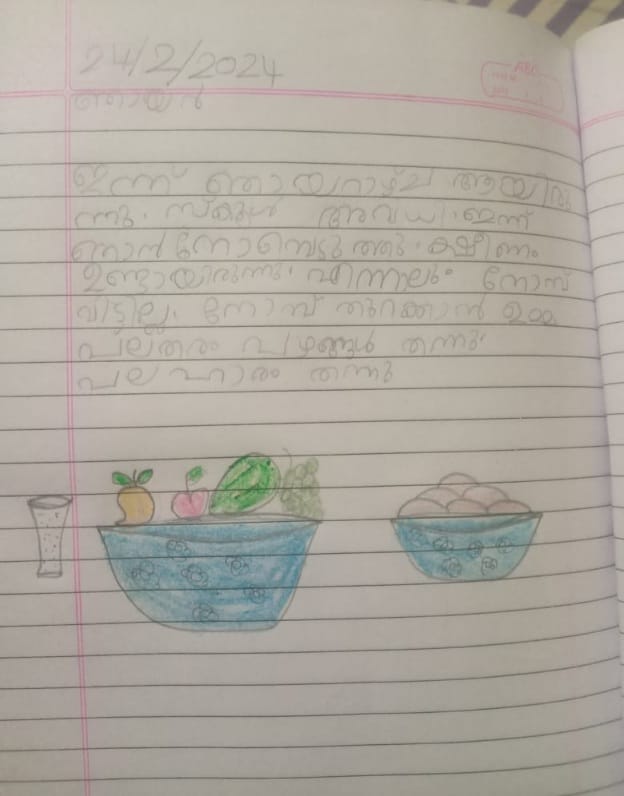 24/2/2024
ABC
ഞായർ
ഇന്ന് ഞായറാഴ്ച ആയിരു
ന്നു. സ്കൂൾ അവധി. ഇന്ന്
ഞാൻ നോമ്പെടുത്തു. ക്ഷീണം
ഉണ്ടായിരുന്നു. എന്നാലും നോമ്പ്
വിട്ടില്ല. നോമ്പ് തുറക്കാൻ ഉമ്മ
പലതരം പഴങ്ങൾ തന്നു.
പലഹാരം തന്നു